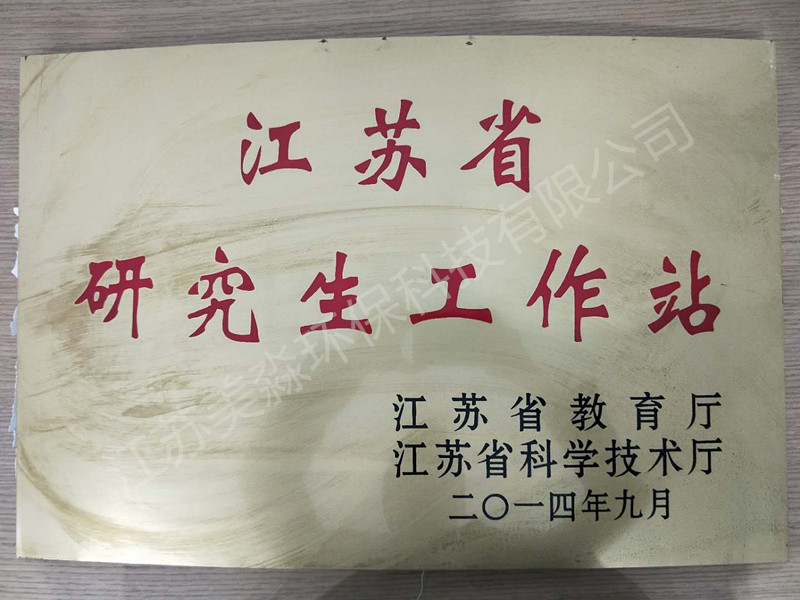 江苏省
研究生工作站
江苏省教育厅
江苏省科学技术厅
二〇一四年九月
江苏美淼环保科技有限公司